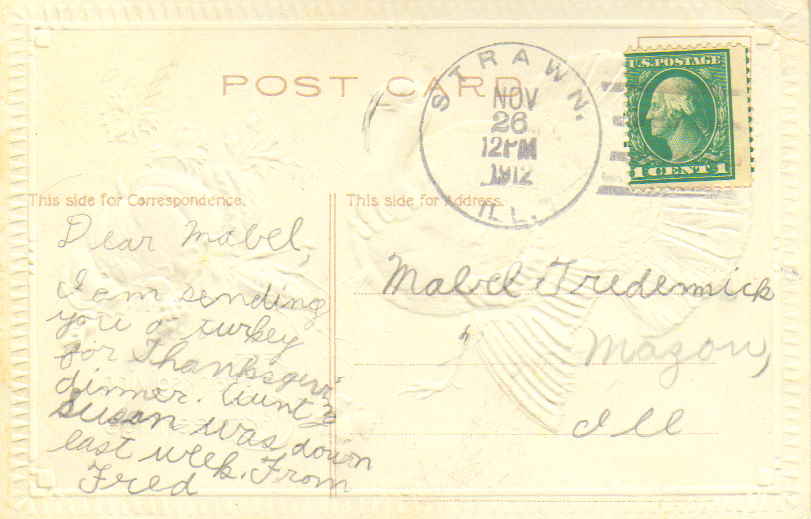 POST CARD
STRAWN.
NOV
26
12PM
1912
ILL.
U.S. POSTAGE
1 CENT 1
This side for Correspondence.
This side for Address.
Dear Mabel,
I am sending
you a turkey
for Thanksgivi
dinner. Aunt
Susan was down
last week. From
Fred
Mabel
Mazon,
Ill